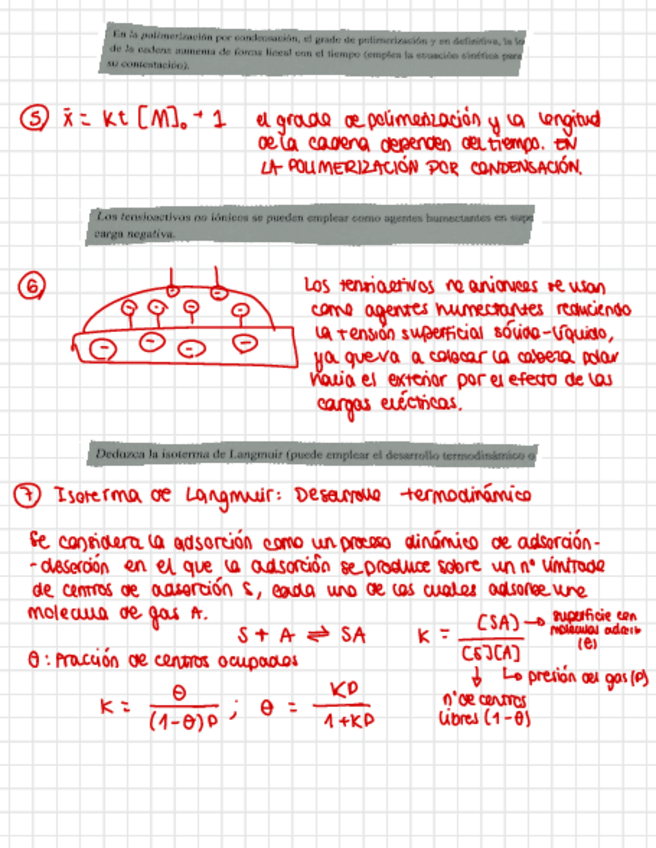 En la polimerización por condensación, el grado de polimerización y en definitiva, la lo
de la cadena aumenta de forma lineal con el tiempo (emplea la ecuación cinética para
su contestación).
5 x̄ = Kt [M]₀ + 1 el grado de polimerización y la longitud
de la cadena dependen del tiempo. EN
LA POLIMERIZACIÓN POR CONDENSACIÓN.
Los tensioactivos no iónicos se pueden emplear como agentes humectantes en supe
carga negativa.
6 Los tensioactivos no anionicos se usan
como agentes humectantes reduciendo
la tensión superficial sólido-líquido,
ya que va a colocar la cabeza polar
hacia el exterior por el efecto de las
cargas eléctricas.
Deduzca la isoterma de Langmuir (puede emplear el desarrollo termodinámico o
7 Isoterma de Langmuir: Desarrollo termodinámico
Se considera la adsorción como un proceso dinámico de adsorción-
-desorción en el que la adsorción se produce sobre un nº limitado
de centros de adsorción S, cada uno de los cuales adsorbe una
molecula de gas A.
S + A ⇌ SA K = [SA] / [S][A] → superficie con
moléculas adsorb
(θ)
θ: Fracción de centros ocupados
↳ presión del gas (P)
↓ nº de centros
libres (1-θ)
K = θ / (1-θ)P ; θ = KP / 1+KP